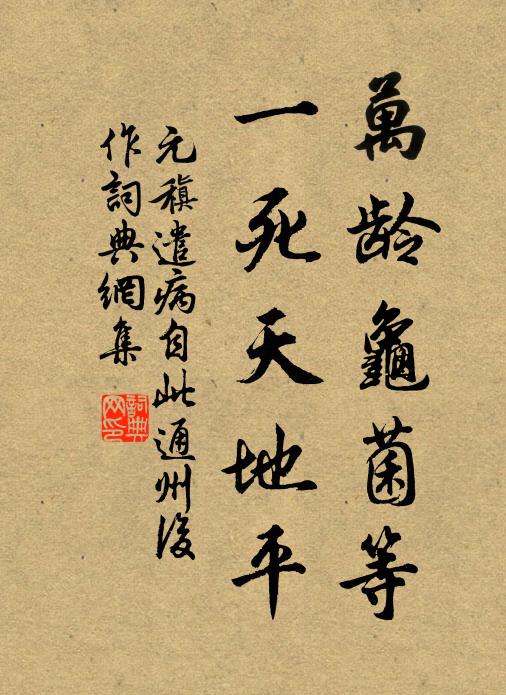 萬龄龜菌等
一死天地平
元稹遣病自此通州後
作詞典網集
詞典
网印